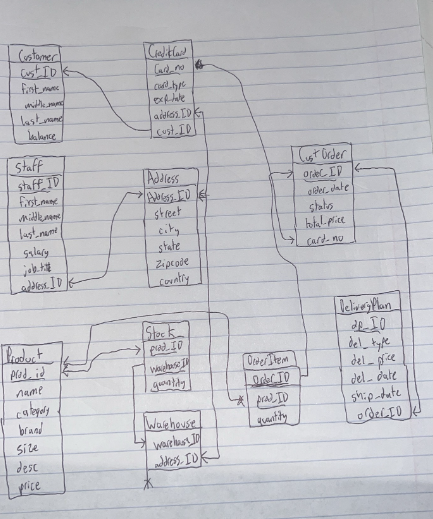 Customer
Cust_ID
first_name
middle_name
last_name
balance
CreditCard
Card_no
card_type
exp_date
address_ID
cust_ID
Staff
staff_ID
first_name
middle_name
last_name
salary
job_title
address_ID
Address
Address_ID
street
city
state
Zipcode
country
Cust Order
order_ID
order_date
status
total_price
card_no
Product
prod_id
name
category
brand
size
desc
price
Stock
prod_ID
warehouse_ID
quantity
Warehouse
warehouse_ID
address_ID
OrderItem
Order_ID
prod_ID
quantity
DeliveryPlan
dp_ID
del_type
del_price
del_date
ship_date
order_ID